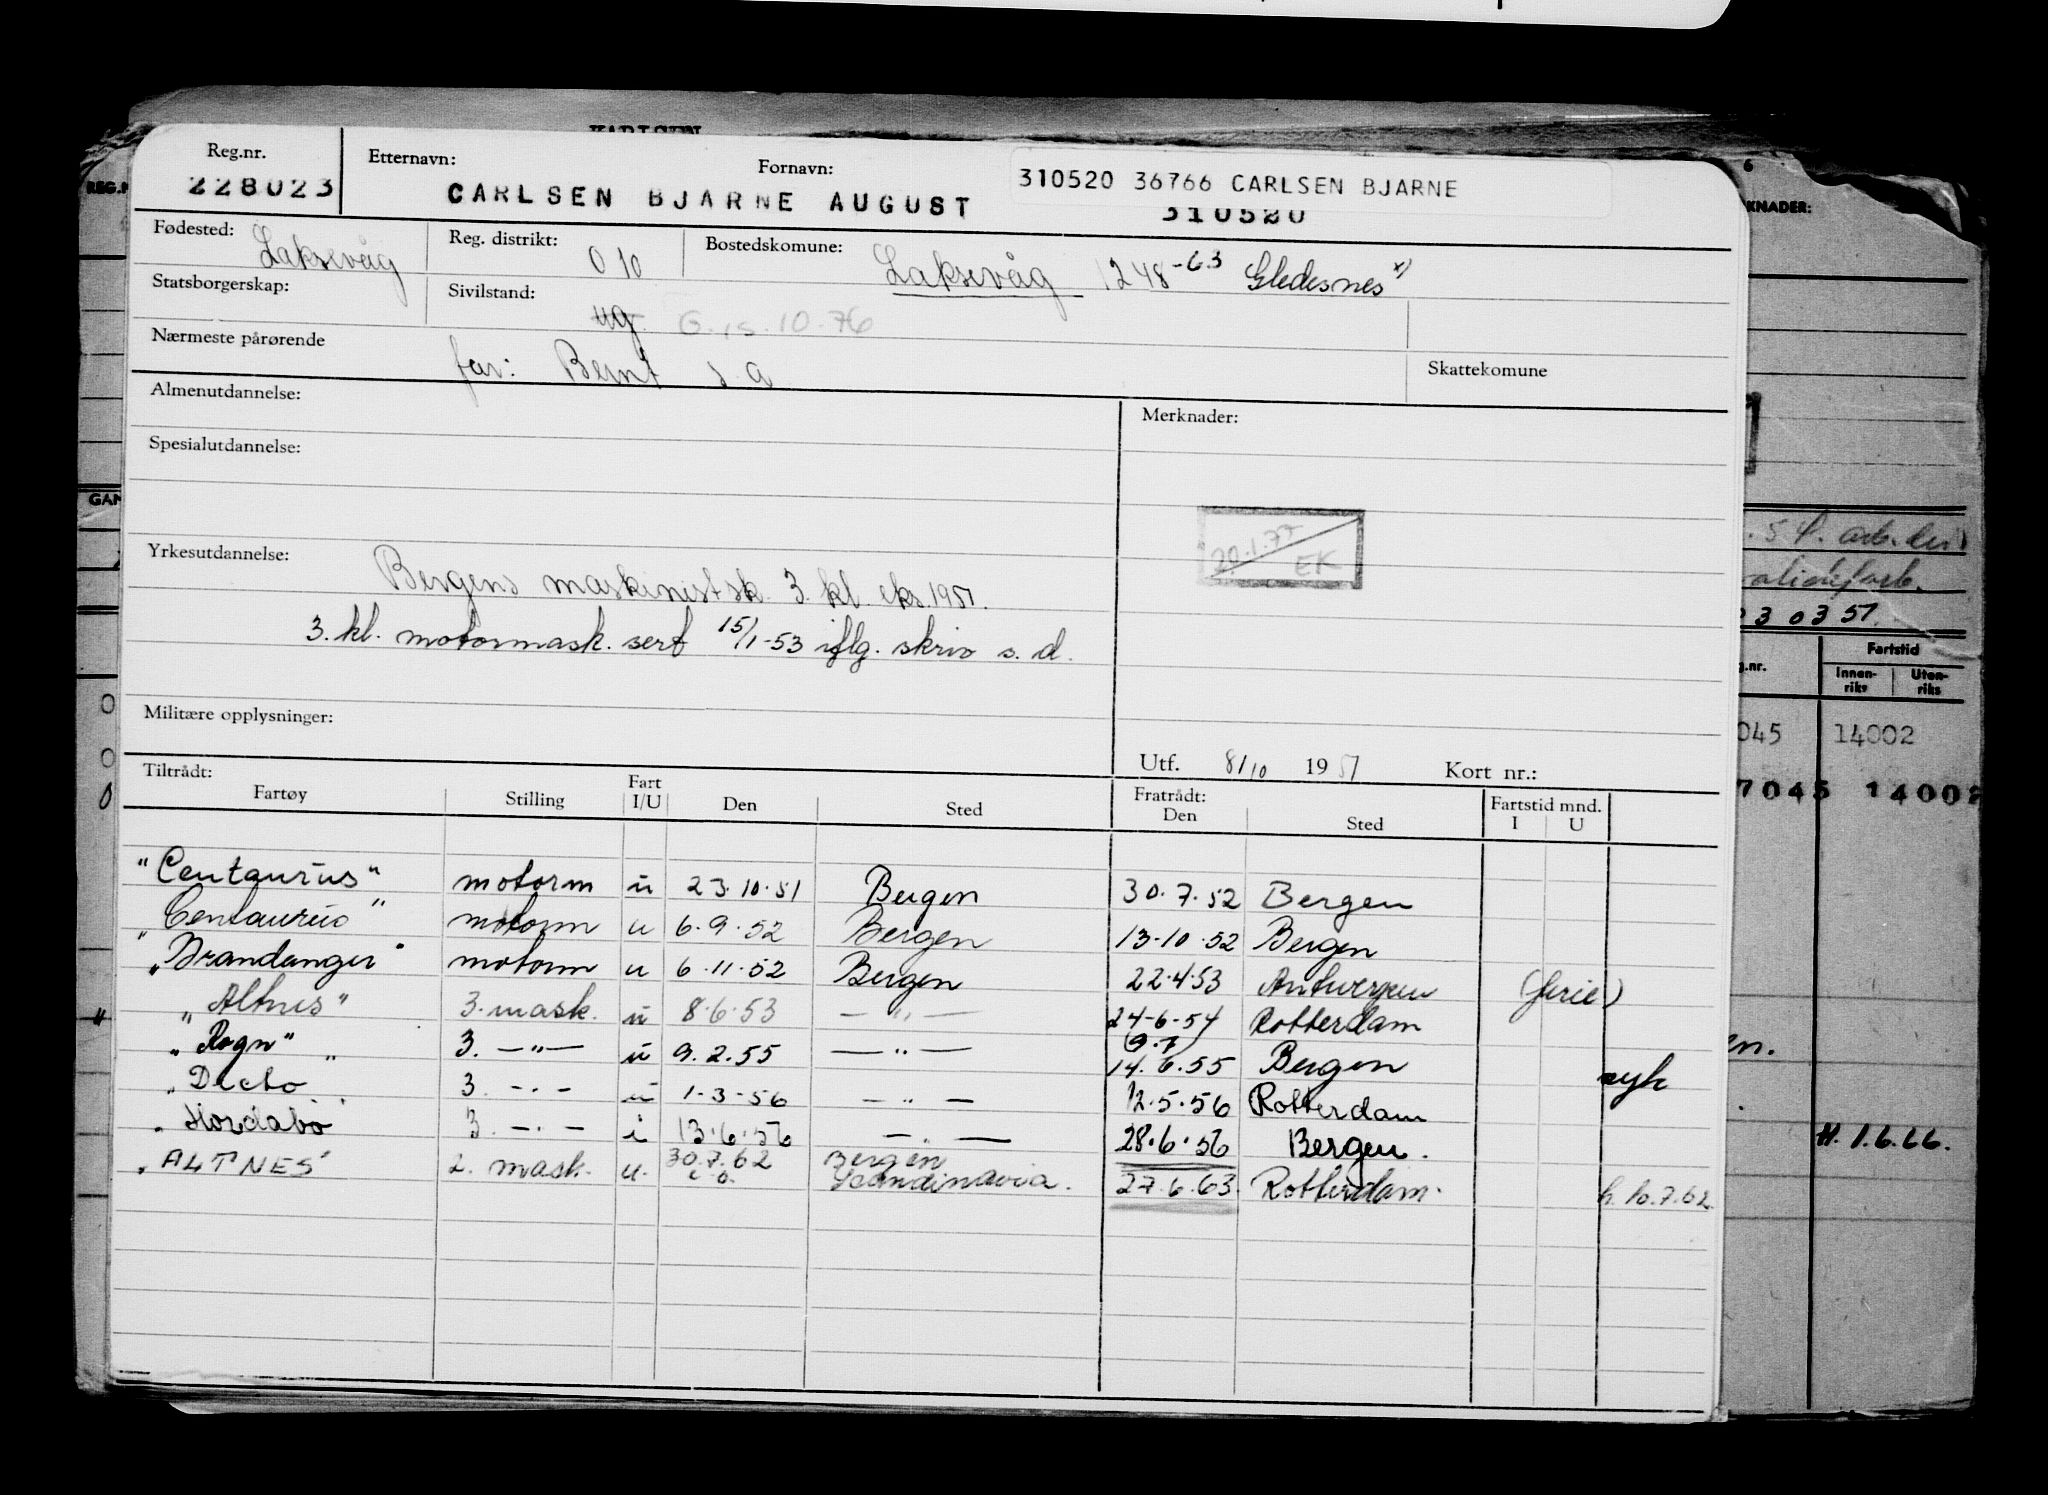 KARLSEN
Reg.nr. 228023
Etternavn: Fornavn: CARLSEN BJARNE AUGUST
310520 36766 CARLSEN BJARNE
310520
Fødested: Laksevåg Reg. distrikt: 010 Bostedskomune: Laksevåg 1248-63 Gledesnes x)
Statsborgerskap: Sivilstand: ug. G. 10.76
Nærmeste pårørende far: Bernt s a
Skattekomune
Almenutdannelse:
Merknader:
Spesialutdannelse:
20.1.77 EK
Yrkesutdannelse: Bergens maskinistsk. 3. kl. eks. 1951.
3. kl. motormask. sert 15/1-53 iflg. skriv s. d.
Militære opplysninger:
Utf. 8/10 1951 Kort nr.:
Tiltrådt: Fratrådt: Fartstid mnd.
Fartøy Stilling Fart I/U Den Sted Den Sted I U
"Centaurus" motorm u 23.10.51 Bergen 30.7.52 Bergen
"Centaurus" motorm u 6.9.52 Bergen 13.10.52 Bergen
"Brandanger" motorm u 6.11.52 Bergen 22.4.53 Antwerpen (ferie)
"Altnes" 3. mask. u 8.6.53 — " — 24-6-54 Rotterdam
"Rogn" 3. — " — u 9.2.55 — " — (9.7) 14.6.55 Bergen syk
"Decto" 3. — " — u 1-3-56 — " — 12.5.56 Rotterdam
"Hordabo" 3. — " — i 13.6.56 — " — 28.6.56 Bergen.
"ALTNES" 2. mask. u. 30.7.62 Bergen Scandinavia. 27.6.63. Rotterdam. h. 10.7.62
KNADER:
030351.
Fartstid
g.nr. Innen-riks Uten-riks
045 14002
7045 14002
H. 1.6.66.